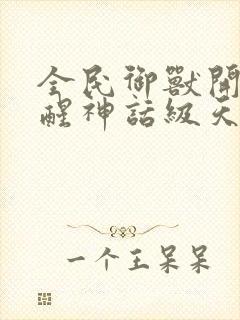 全民御獸開
醒神話級天
一个王呆呆